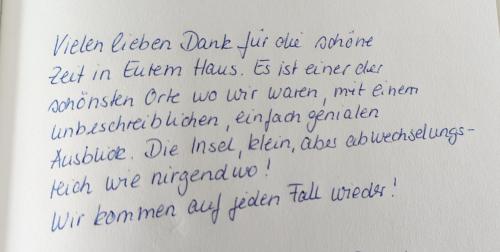 Vielen lieben Dank für die schöne
Zeit in Eurem Haus. Es ist einer der
schönsten Orte wo wir waren, mit einem
unbeschreiblichen, einfach genialen
Ausblick. Die Insel, klein, aber abwechselungs-
reich wie nirgendwo!
Wir kommen auf jeden Fall wieder!